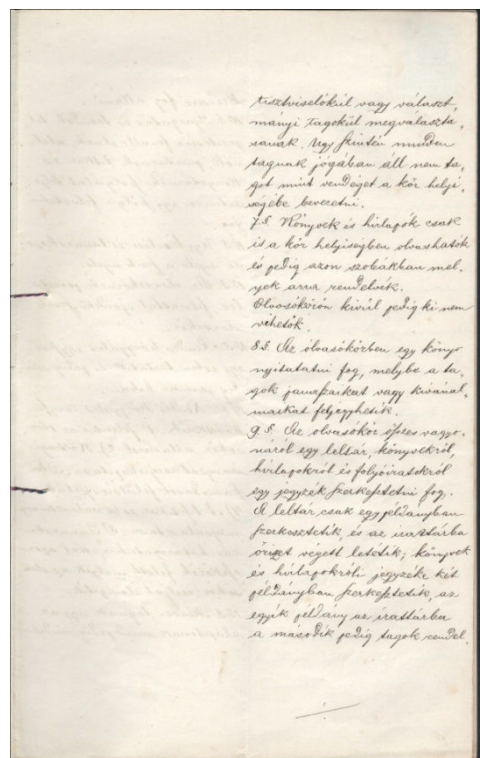 tisztviselőkül vagy választ,
mányi tagokúl megválaszta,
sanak. Úgy szintén minden
tagnak jógában áll nem ta,
got mint vendéget a kör helyi,
ségébe bevezetni.
7.§. Könyvek és hírlapók csak
is a kör helyiségben olvashatók
és pedig azon szobákban mel,
yek arra rendelvék.
Olvasókörön kivül pedig ki nem
vihetők.
8.§. Az olvasókörben egy könyv
nyitatatni fog, melybe a ta,
gok panaszaikat vagy kivánal,
maikat feljegyhetik.
9.§. Az olvasókör összes vagyo,
náról egy leltár, könyvekről,
hírlapokról és folyóiratokról
egy jegyzék szerkesztetni fog.
A leltár csak egy példányban
szerkesztetik, és az irattárba
őrizet végett letetik; könyvek
és hírlapokróli jegyzéke két
példányban szerkesztetik, az
egyik példány az irattárba
a második pedig tagok rendel,